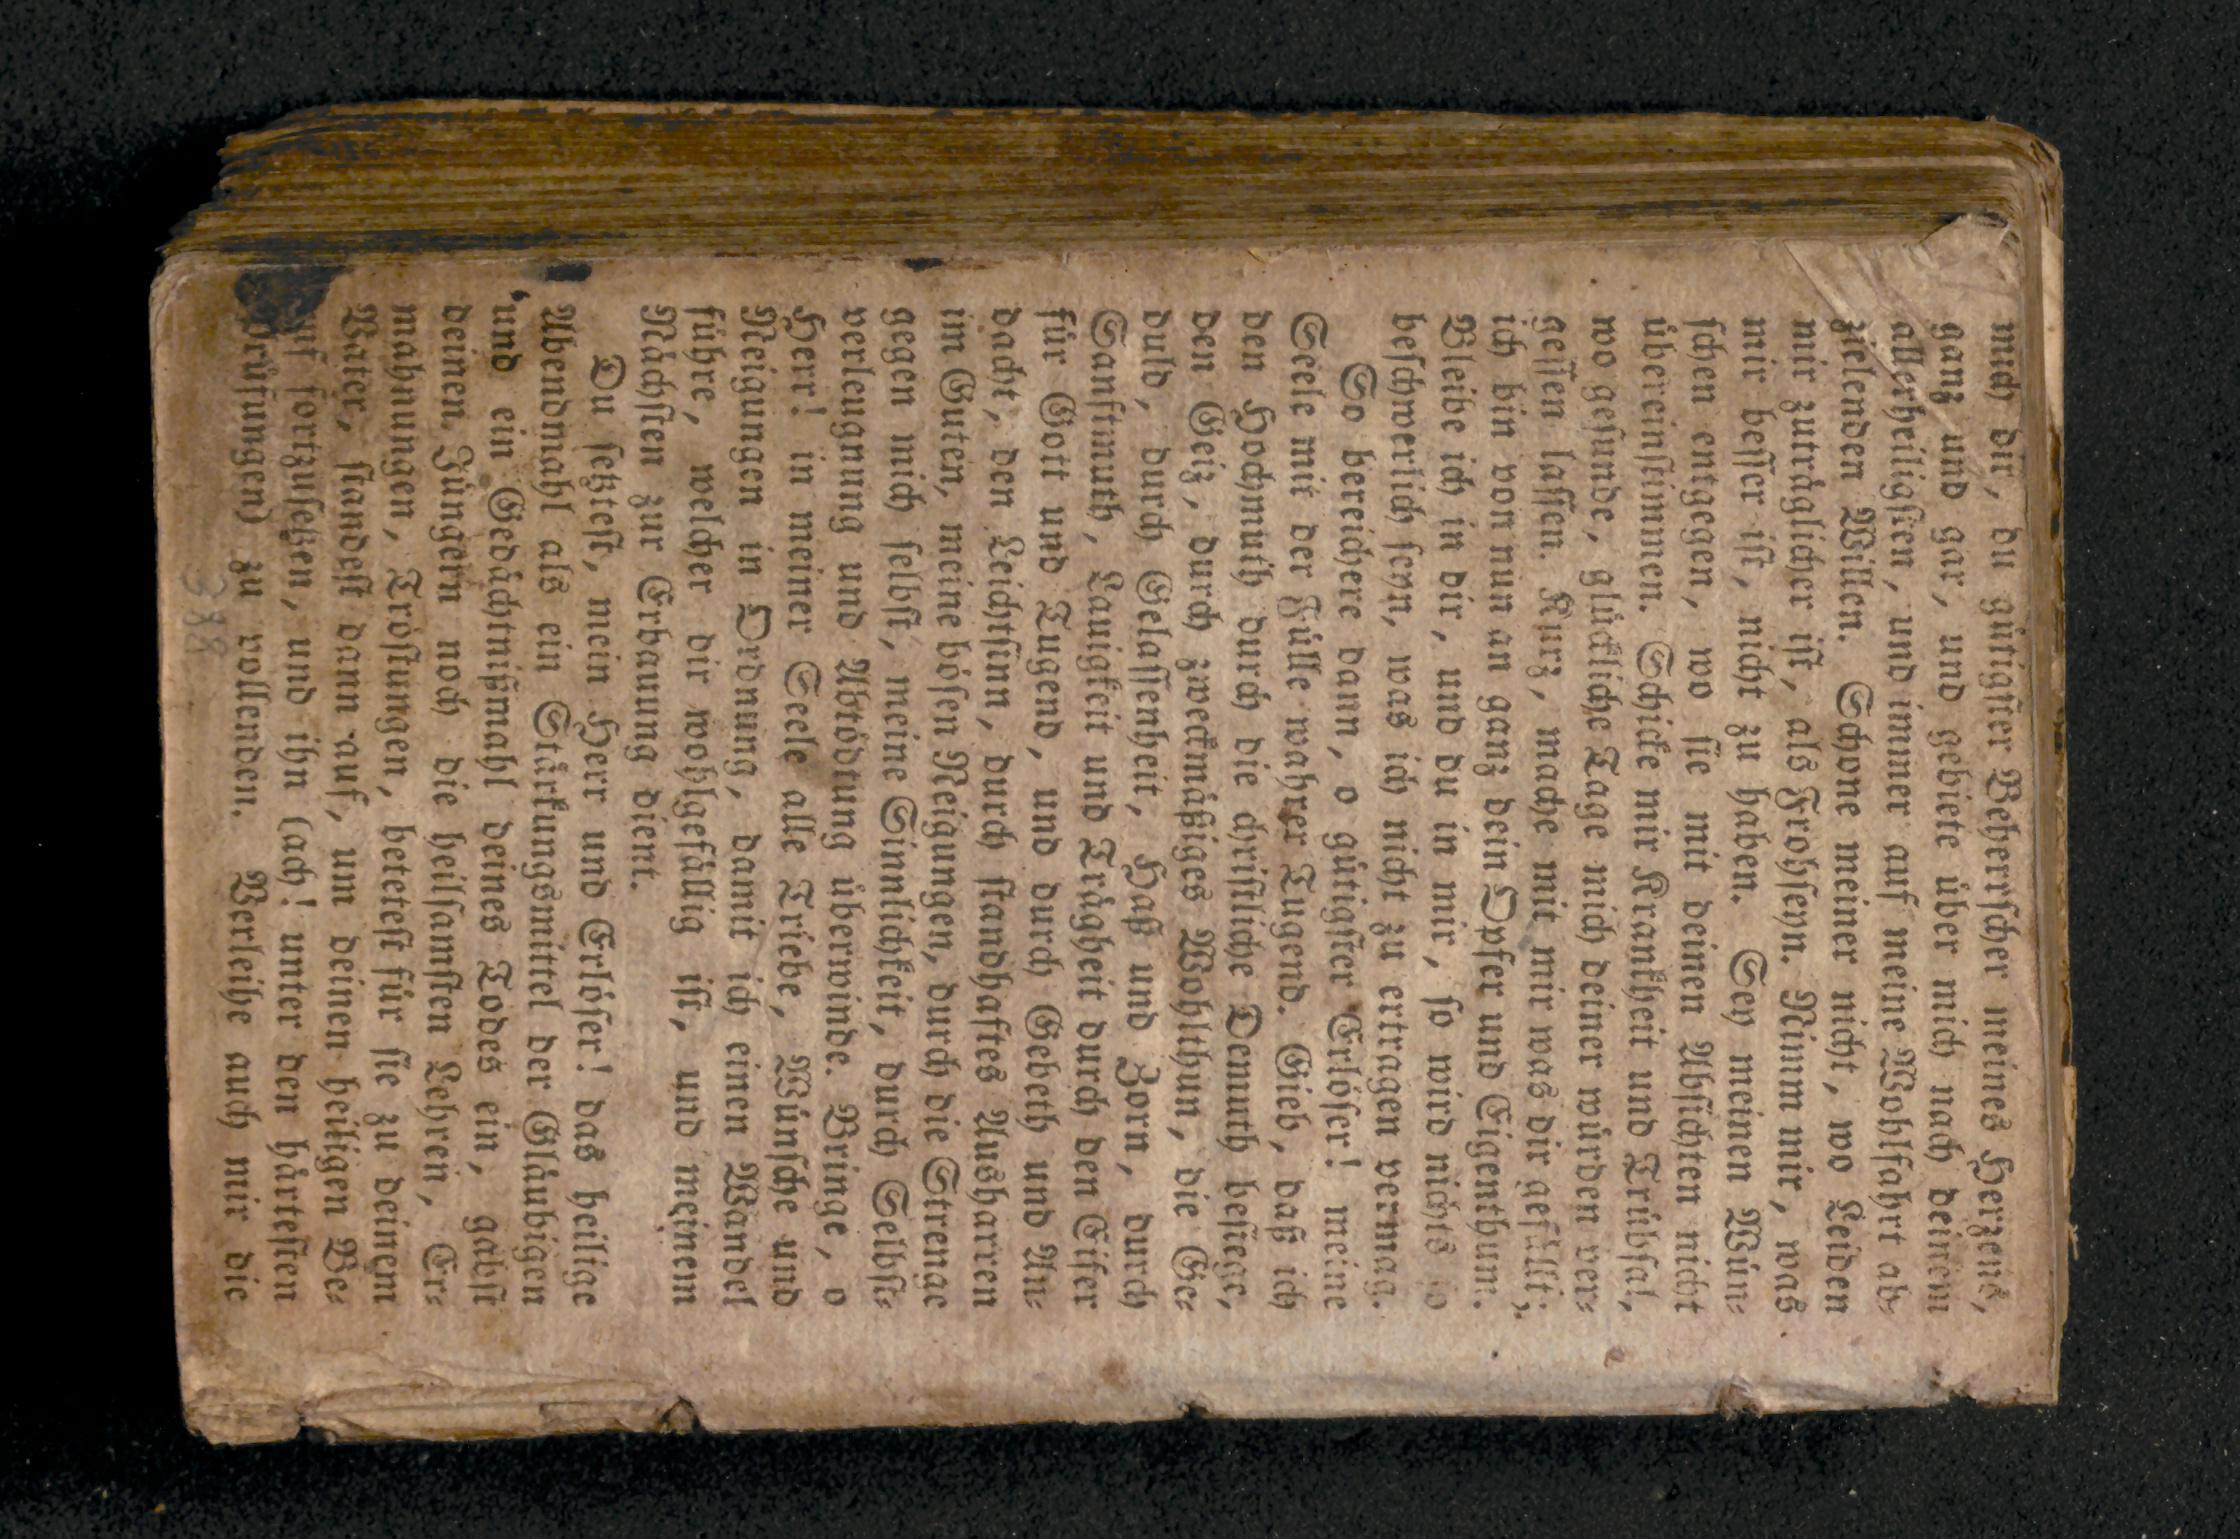 mich dir, du gütigster Beherrscher meines Herzens,
ganz und gar, und gebiete über mich nach deinem
allerheiligsten, und immer auf meine Wohlfahrt ab-
zielenden Willen. Schone meiner nicht, wo Leiden
mir zuträglicher ist, als Frohseyn. Nimm mir, was
mir besser ist, nicht zu haben. Sey meinen Wün-
schen entgegen, wo sie mit deinen Absichten nicht
übereinstimmen. Schicke mir Krankheit und Trübsal,
wo gesunde, glückliche Tage mich deiner würden ver-
gessen lassen. Kurz, mache mit mir was dir gefällt;
ich bin von nun an ganz dein Opfer und Eigenthum.
Bleibe ich in dir, und du in mir, so wird nichts so
beschwerlich seyn, was ich nicht zu ertragen vermag.
So bereichere dann, o gütigster Erlöser! meine
Seele mit der Fülle wahrer Tugend. Gieb, daß ich
den Hochmuth durch die christliche Demuth besiege,
den Geiz, durch zweckmäßiges Wohlthun, die Ge-
duld, durch Gelassenheit, Haß und Zorn, durch
Sanftmuth, Lauigkeit und Trägheit durch den Eifer
für Gott und Tugend, und durch Gebeth und An-
dacht, den Leichtsinn, durch standhaftes Ausharren
im Guten, meine bösen Neigungen, durch die Strenge
gegen mich selbst, meine Sinnlichkeit, durch Selbst-
verleugnung und Abtödtung überwinde. Bringe, o
Herr! in meiner Seele alle Triebe, Wünsche und
Neigungen in Ordnung, damit ich einen Wandel
führe, welcher dir wohlgefällig ist, und meinem
Nächsten zur Erbauung dient.
Du setztest, mein Herr und Erlöser! das heilige
Abendmahl als ein Stärkungsmittel der Gläubigen
und ein Gedächtnißmahl deines Todes ein, gabst
deinen Jüngern noch die heilsamsten Lehren, Er-
mahnungen, Tröstungen, betetest für sie zu deinem
Vater, standest dann auf, um deinen heiligen Be-
ruf fortzusetzen, und ihn (ach! unter den härtesten
Prüfungen) zu vollenden. Verleihe auch mir die
388